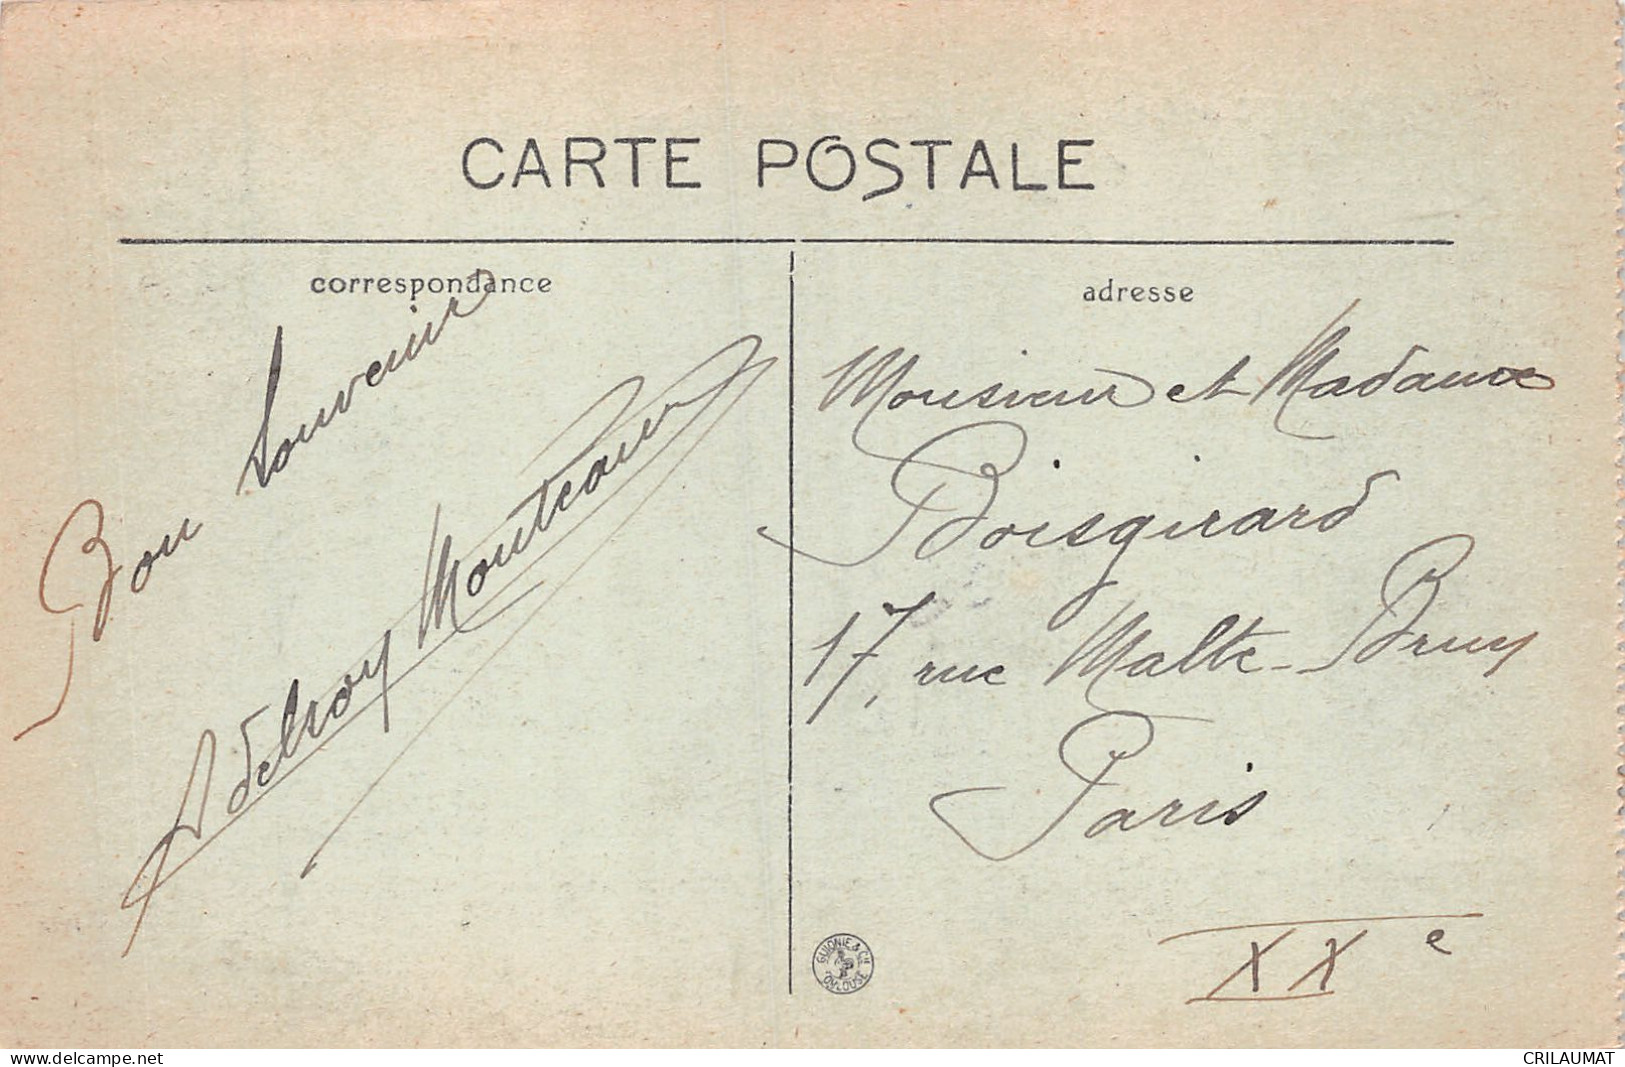 CARTE POSTALE
correspondance
Bon souvenir
Adelroy
adresse
Monsieur et Madame
Boisgirard
17, rue Malte-Brun
Paris
XXe
TOULOUSE
www.delcampe.net
CRILAUMAT